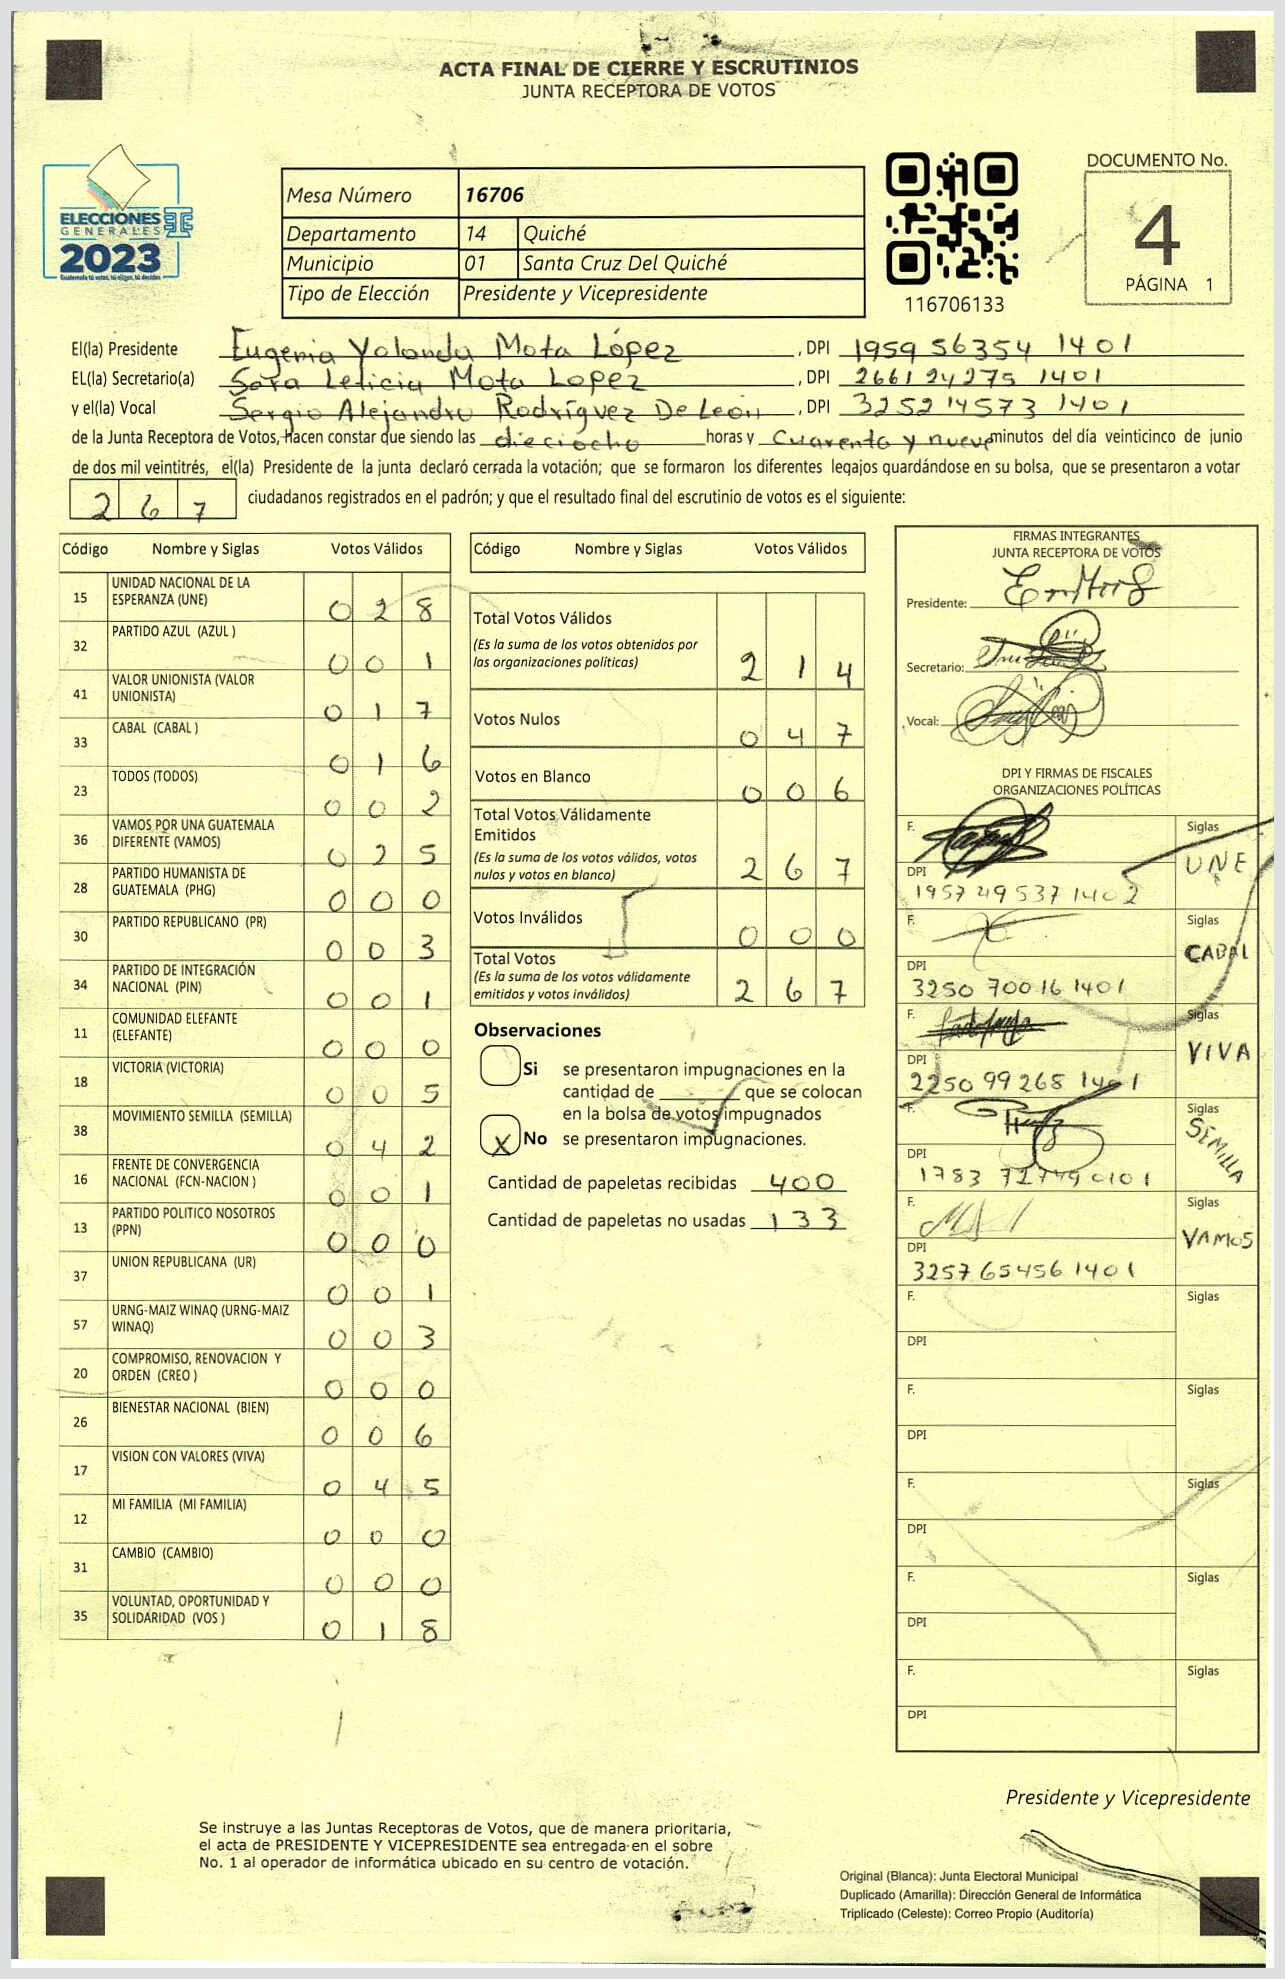 ACTA FINAL DE CIERRE Y ESCRUTINIOS
JUNTA RECEPTORA DE VOTOS
ELECCIONES
GENERALES
2023
Mesa Número 16706
Departamento 14 Quiché
Municipio 01 Santa Cruz Del Quiché
Tipo de Elección Presidente y Vicepresidente
116706133
DOCUMENTO No.
4
PÁGINA 1
El(la) Presidente Eugenia Yolanda Mota López, DPI 1959 56354 1401
EL(la) Secretario(a) Sara Leticia Mota Lopez, DPI 2661 24275 1401
y el(la) Vocal Sergio Alejandro Rodríguez De León, DPI 3252 14573 1401
de la Junta Receptora de Votos, Hacen constar que siendo las dieciocho horas y cuarenta y nueve minutos del día veinticinco de junio
de dos mil veintitrés, el(la) Presidente de la junta declaró cerrada la votación; que se formaron los diferentes legajos guardándose en su bolsa, que se presentaron a votar
267 ciudadanos registrados en el padrón; y que el resultado final del escrutinio de votos es el siguiente:
Código Nombre y Siglas Votos Válidos
15 UNIDAD NACIONAL DE LA ESPERANZA (UNE) 0 2 8
32 PARTIDO AZUL (AZUL ) 0 0 1
41 VALOR UNIONISTA (VALOR UNIONISTA) 0 1 7
33 CABAL (CABAL ) 0 1 6
23 TODOS (TODOS) 0 0 2
36 VAMOS POR UNA GUATEMALA DIFERENTE (VAMOS) 0 2 5
28 PARTIDO HUMANISTA DE GUATEMALA (PHG) 0 0 0
30 PARTIDO REPUBLICANO (PR) 0 0 3
34 PARTIDO DE INTEGRACIÓN NACIONAL (PIN) 0 0 1
11 COMUNIDAD ELEFANTE (ELEFANTE) 0 0 0
18 VICTORIA (VICTORIA) 0 0 5
38 MOVIMIENTO SEMILLA (SEMILLA) 0 4 2
16 FRENTE DE CONVERGENCIA NACIONAL (FCN-NACION ) 0 0 1
13 PARTIDO POLITICO NOSOTROS (PPN) 0 0 0
37 UNION REPUBLICANA (UR) 0 0 1
57 URNG-MAIZ WINAQ (URNG-MAIZ WINAQ) 0 0 3
20 COMPROMISO, RENOVACION Y ORDEN (CREO ) 0 0 0
26 BIENESTAR NACIONAL (BIEN) 0 0 6
17 VISION CON VALORES (VIVA) 0 4 5
12 MI FAMILIA (MI FAMILIA) 0 0 0
31 CAMBIO (CAMBIO) 0 0 0
35 VOLUNTAD, OPORTUNIDAD Y SOLIDARIDAD (VOS ) 0 1 8
Código Nombre y Siglas Votos Válidos
Total Votos Válidos
(Es la suma de los votos obtenidos por
las organizaciones políticas) 2 1 4
Votos Nulos 0 4 7
Votos en Blanco 0 0 6
Total Votos Válidamente
Emitidos
(Es la suma de los votos válidos, votos
nulos y votos en blanco) 2 6 7
Votos Inválidos 0 0 0
Total Votos
(Es la suma de los votos válidamente
emitidos y votos inválidos) 2 6 7
Observaciones
Si se presentaron impugnaciones en la
cantidad de que se colocan
en la bolsa de votos impugnados
X No se presentaron impugnaciones.
Cantidad de papeletas recibidas 400
Cantidad de papeletas no usadas 133
FIRMAS INTEGRANTES
JUNTA RECEPTORA DE VOTOS
Presidente:
Secretario:
Vocal:
DPI Y FIRMAS DE FISCALES
ORGANIZACIONES POLÍTICAS
F. Siglas UNE
DPI 1957 49537 1402
F. Siglas CABAL
DPI 3250 70016 1401
F. Siglas VIVA
DPI 2250 99268 1401
F. Siglas SEMILLA
DPI 1783 72749 0101
F. Siglas VAMOS
DPI 3257 65456 1401
F. Siglas
DPI
F. Siglas
DPI
F. Siglas
DPI
F. Siglas
DPI
F. Siglas
DPI
Presidente y Vicepresidente
Se instruye a las Juntas Receptoras de Votos, que de manera prioritaria,
el acta de PRESIDENTE Y VICEPRESIDENTE sea entregada en el sobre
No. 1 al operador de informática ubicado en su centro de votación.
Original (Blanca): Junta Electoral Municipal
Duplicado (Amarilla): Dirección General de Informática
Triplicado (Celeste): Correo Propio (Auditoría)